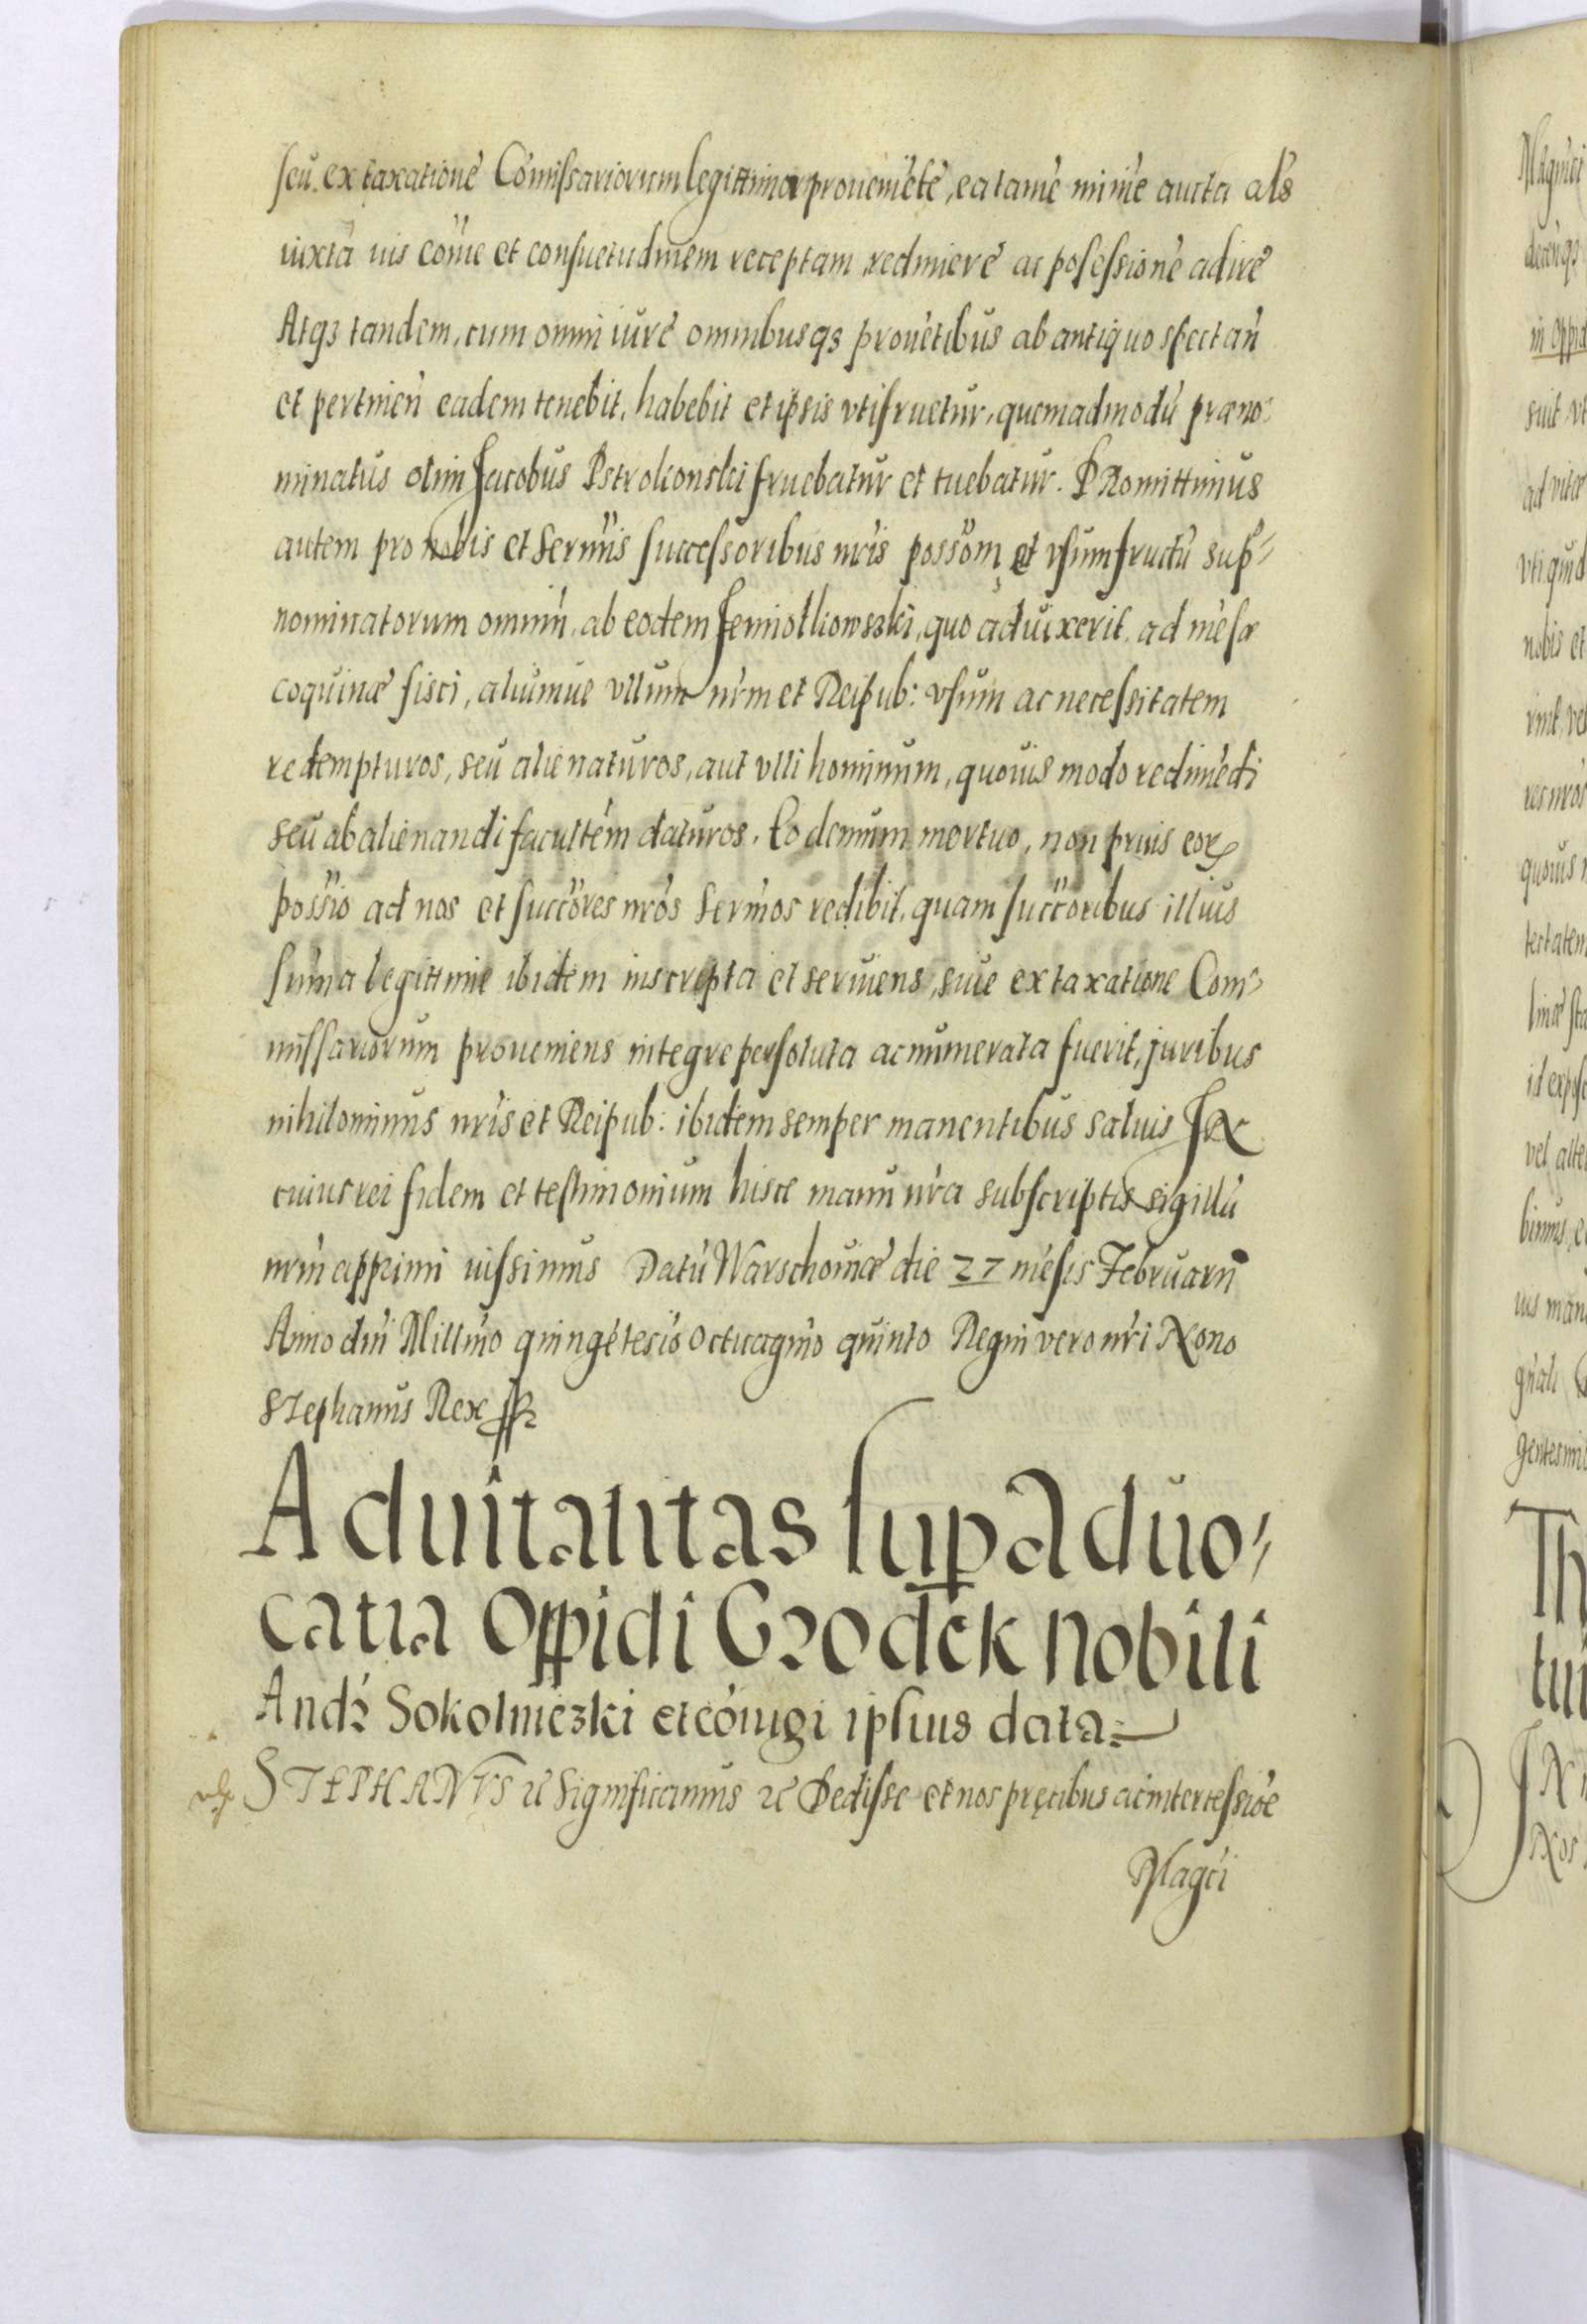 seu ex taxatione Cōmissariorum legittima proueniētē, ea tamē minīe aucta als
iuxta iuis cōīne et consuetudinem receptam redimere ac possessionē adire
Atqz tandem, cum omni iure omnibusqz prouētibus ab antiquo spectań
et pertineń eadem tenebit, habebit et ipsis vtifruetur, quemadmodū præno-
minatus olim Jacobus Pstrokonski fruebatur et tuebatur. PRomittimus
autem pro nobis et Sermīs successoribus nrīs possom et vsumfructū sup-
nominatorum omniū, ab eodem Jemiolkowszki, quo aduixerit, ad mēsæ
coquinæ fisci, aliumue vllum nrm et Reipub: vsum ac necessitatem
redempturos, seu alienaturos, aut vlli hominum, quouis modo redimēdi
seu abalienandi facultēm daturos. Eo demum mortuo, non prius eorꝝ
possio ad nos et succōres nrōs Sermōs redibit, quam succōribus illius
sum̄a legittime ibidem inscripta et seruiens, siue ex taxatione Com-
missariorum proueniens integre persoluta ac numerata fuerit, juribus
nihilominus nrīs et Reipub: ibidem semper manentibus saluis In
cuius rei fidem et testimonium hisce manu nrā subscriptis sigillū
nrm̄ apprimi iussimus Datū Warschouiæ die 27 mēsis Februarij
Anno dnī Millmō quingētesiō Octuagmō quinto Regni vero nrī Nono
STephanus Rex sst
Aduitalitas sup Aduo-
catia Oppidi Grodek nobili
Andꝫ Sokolniczki et cōiugi ipsius data
STEPHANVS ꝛc Significamus ꝛc Dedisse et nos pręcibus ac intercessiōe
Magci